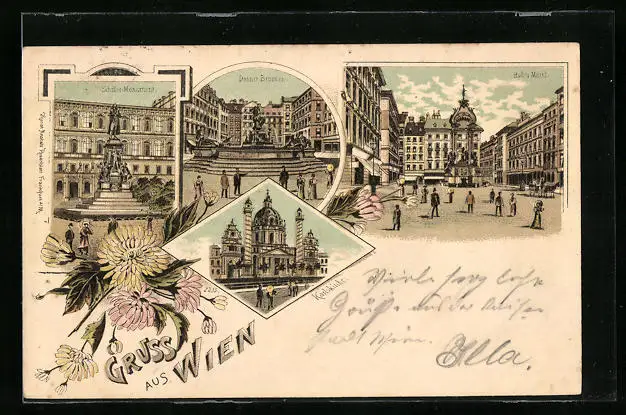 Schiller-Monument.
Donner Brunnen.
Hoher Markt.
Karlskirche.
GRUSS
AUS WIEN
Viele herzliche
Grüße aus der Kaiser
stadt Wien.
Ella.